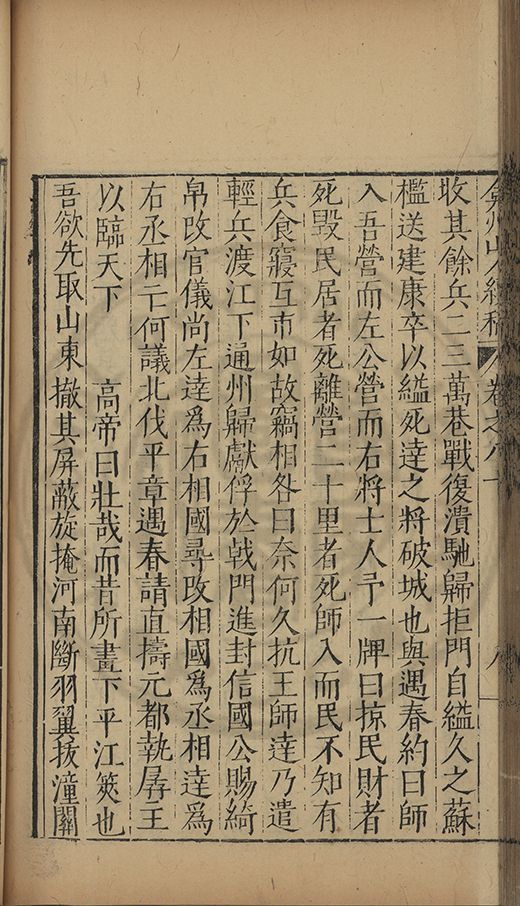 弇州山人續稿 卷之八十 八
收其餘兵二三萬巷戰復潰馳歸拒門自縊久之蘇
檻送建康卒以縊死達之將破城也與遇春約曰師
入吾營而左公營而右將士人予一牌曰掠民財者
死毀民居者死離營二十里者死師入而民不知有
兵食寢互市如故竊相咎曰奈何久抗王師達乃遣
輕兵渡江下通州歸獻俘於戟門進封信國公賜綺
帛改官儀尚左達為右相國尋改相國為丞相達為
右丞相亡何議北伐平章遇春請直擣元都執孱王
以臨天下　　高帝曰壯哉而昔所畫下平江筴也
吾欲先取山東撤其屏蔽旋掩河南斷羽翼拔潼關